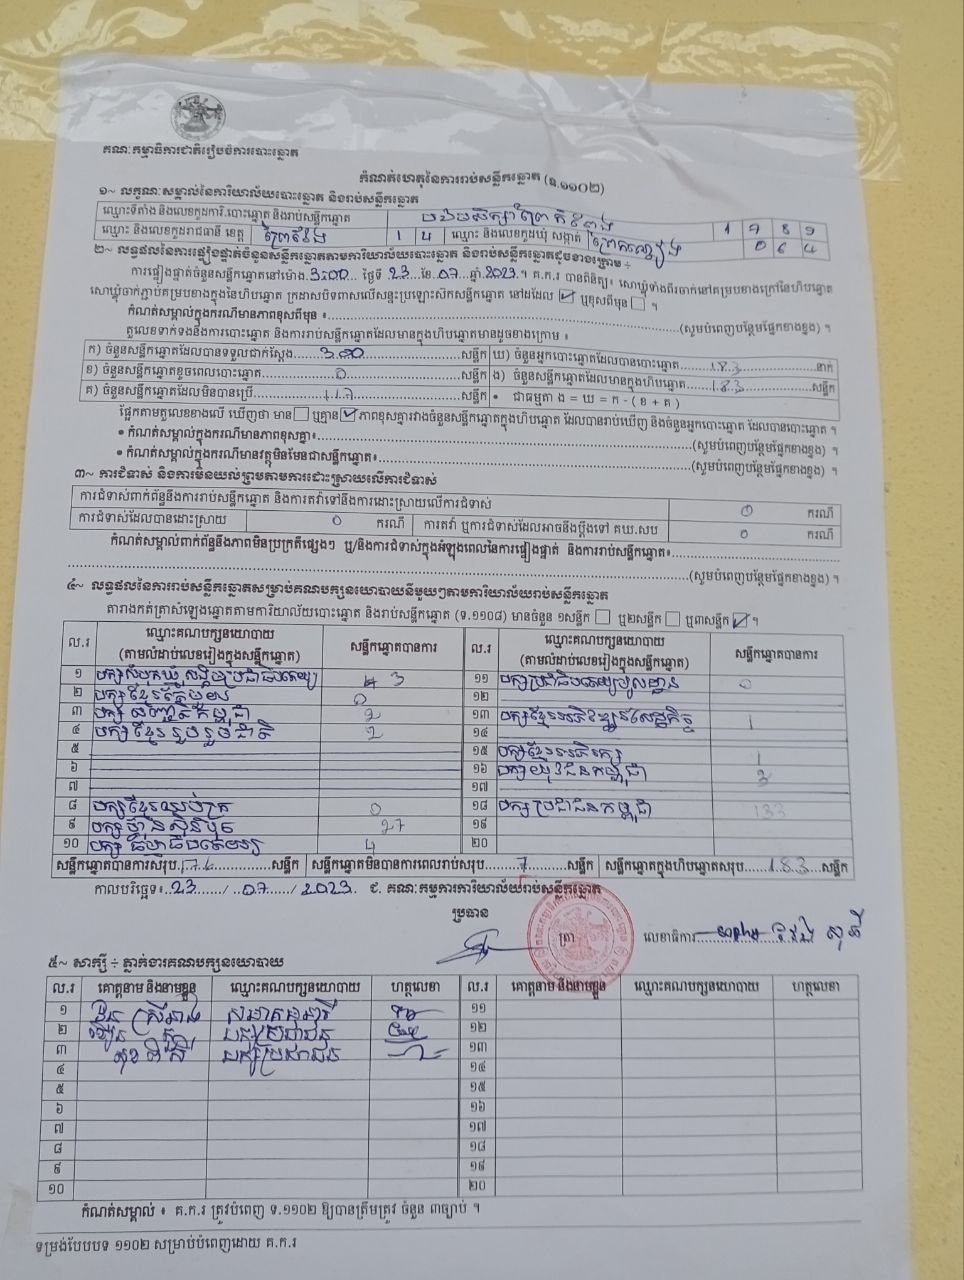 គណៈកម្មាធិការជាតិរៀបចំការបោះឆ្នោត
កំណត់ហេតុនៃការរាប់សន្លឹកឆ្នោត (ទ.១១០២)
១~ លក្ខណៈសម្គាល់នៃការិយាល័យបោះឆ្នោត និងរាប់សន្លឹកឆ្នោត
ឈ្មោះទីតាំង និងលេខកូដការិ.បោះឆ្នោត និងរាប់សន្លឹកឆ្នោត 1 7 8 9
ឈ្មោះ និងលេខកូដរាជធានី ខេត្ត ព្រៃវែង 1 4 ឈ្មោះ និងលេខកូដឃុំ សង្កាត់ 0 6 4
២~ លទ្ធផលនៃការផ្ទៀងផ្ទាត់ចំនួនសន្លឹកឆ្នោតតាមការិយាល័យបោះឆ្នោត និងរាប់សន្លឹកឆ្នោតដូចខាងក្រោម ÷
ការផ្ទៀងផ្ទាត់ចំនួនសន្លឹកឆ្នោតនៅម៉ោង.3:00... ថ្ងៃទី .23...ខែ.07...ឆ្នាំ.2023.។ គ.ក.រ បានពិនិត្យ៖ សោឃ្លុំទាំងពីរចាក់នៅគម្របខាងក្រៅនៃហិបឆ្នោត
សោឃ្លុំចាក់ភ្ជាប់គម្របខាងក្នុងនៃហិបឆ្នោត ក្រដាសបិទពាសលើសន្ទះប្រឡោះស៊កសន្លឹកឆ្នោត នៅដដែល ☑ ឬខុសពីមុន ☐ ។
កំណត់សម្គាល់ក្នុងករណីមានភាពខុសពីមុន ៖........(សូមបំពេញបន្ថែមផ្នែកខាងខ្នង) ។
តួលេខទាក់ទងនឹងការបោះឆ្នោត និងការរាប់សន្លឹកឆ្នោតដែលមានក្នុងហិបឆ្នោតមានដូចខាងក្រោម ៖
ក) ចំនួនសន្លឹកឆ្នោតដែលបានទទួលជាក់ស្តែង......300......សន្លឹក ឃ) ចំនួនអ្នកបោះឆ្នោតដែលបានបោះឆ្នោត......183......នាក់
ខ) ចំនួនសន្លឹកឆ្នោតខូចពេលបោះឆ្នោត......0......សន្លឹក ង) ចំនួនសន្លឹកឆ្នោតដែលមានក្នុងហិបឆ្នោត......183......សន្លឹក
គ) ចំនួនសន្លឹកឆ្នោតដែលមិនបានប្រើ......117......សន្លឹក • ជាធម្មតា ង = ឃ = ក - ( ខ + គ )
ផ្អែកតាមតួលេខខាងលើ ឃើញថា មាន☐ ឬគ្មាន☑ ភាពខុសគ្នារវាងចំនួនសន្លឹកឆ្នោតក្នុងហិបឆ្នោត ដែលបានរាប់ឃើញ និងចំនួនអ្នកបោះឆ្នោត ដែលបានបោះឆ្នោត ។
• កំណត់សម្គាល់ក្នុងករណីមានភាពខុសគ្នា៖........(សូមបំពេញបន្ថែមផ្នែកខាងខ្នង) ។
• កំណត់សម្គាល់ក្នុងករណីមានវត្ថុមិនមែនជាសន្លឹកឆ្នោត៖........(សូមបំពេញបន្ថែមផ្នែកខាងខ្នង) ។
៣~ ការជំទាស់ និងការមិនយល់ព្រមតាមការដោះស្រាយលើការជំទាស់
ការជំទាស់ពាក់ព័ន្ធនឹងការរាប់សន្លឹកឆ្នោត និងការតវ៉ាទៅនឹងការដោះស្រាយលើការជំទាស់ 0 ករណី
ការជំទាស់ដែលបានដោះស្រាយ 0 ករណី ការតវ៉ា ឬការជំទាស់ដែលអាចនឹងប្តឹងទៅ គឃ.សប 0 ករណី
កំណត់សម្គាល់ពាក់ព័ន្ធនឹងភាពមិនប្រក្រតីផ្សេងៗ ឬ/និងការជំទាស់ក្នុងអំឡុងពេលនៃការផ្ទៀងផ្ទាត់ និងការរាប់សន្លឹកឆ្នោត៖........
........(សូមបំពេញបន្ថែមផ្នែកខាងខ្នង) ។
៤~ លទ្ធផលនៃការរាប់សន្លឹកឆ្នោតសម្រាប់គណបក្សនយោបាយនីមួយៗតាមការិយាល័យរាប់សន្លឹកឆ្នោត
តារាងកត់ត្រាសំឡេងឆ្នោតតាមការិយាល័យបោះឆ្នោត និងរាប់សន្លឹកឆ្នោត (ទ.១១០៨) មានចំនួន ១សន្លឹក ☐ ឬ២សន្លឹក ☐ ឬ៣សន្លឹក ☑ ។
ល.រ ឈ្មោះគណបក្សនយោបាយ (តាមលំដាប់លេខរៀងក្នុងសន្លឹកឆ្នោត) សន្លឹកឆ្នោតបានការ ល.រ ឈ្មោះគណបក្សនយោបាយ (តាមលំដាប់លេខរៀងក្នុងសន្លឹកឆ្នោត) សន្លឹកឆ្នោតបានការ
១ បក្សសំបុកឃ្មុំសង្គមប្រជាធិបតេយ្យ 3 ១១ បក្សប្រជាធិបតេយ្យមូលដ្ឋាន 0
២ 0 ១២
៣ 2 ១៣ បក្សខ្មែរអភិវឌ្ឍន៍សេដ្ឋកិច្ច 1
៤ បក្សខ្មែររួបរួមជាតិ 2 ១៤
៥ ១៥ បក្សខ្មែរអភិរក្ស 1
៦ ១៦ បក្សយុវជនកម្ពុជា 3
៧ ១៧
៨ បក្សខ្មែរឈប់ក្រ 0 ១៨ បក្សប្រជាជនកម្ពុជា 133
៩ បក្សហ្វ៊ុនស៊ិនប៉ិច 27 ១៩
១០ 4 ២០
សន្លឹកឆ្នោតបានការសរុប.176......សន្លឹក សន្លឹកឆ្នោតមិនបានការពេលរាប់សរុប......7......សន្លឹក សន្លឹកឆ្នោតក្នុងហិបឆ្នោតសរុប......183...សន្លឹក
កាលបរិច្ឆេទ៖..23....../...07....../ 2023. ជ. គណៈកម្មការការិយាល័យរាប់សន្លឹកឆ្នោត
ប្រធាន
ត្រា លេខាធិការ........
៥~ សាក្សី ÷ ភ្នាក់ងារគណបក្សនយោបាយ
ល.រ គោត្តនាម និងនាមខ្លួន ឈ្មោះគណបក្សនយោបាយ ហត្ថលេខា ល.រ គោត្តនាម និងនាមខ្លួន ឈ្មោះគណបក្សនយោបាយ ហត្ថលេខា
១ ១១
២ បក្សប្រជាជន ១២
៣ បក្សប្រជាជន ១៣
៤ ១៤
៥ ១៥
៦ ១៦
៧ ១៧
៨ ១៨
៩ ១៩
១០ ២០
កំណត់សម្គាល់ ៖ គ.ក.រ ត្រូវបំពេញ ទ.១១០២ ឱ្យបានត្រឹមត្រូវ ចំនួន ៣ច្បាប់ ។
ទម្រង់បែបបទ ១១០២ សម្រាប់បំពេញដោយ គ.ក.រ